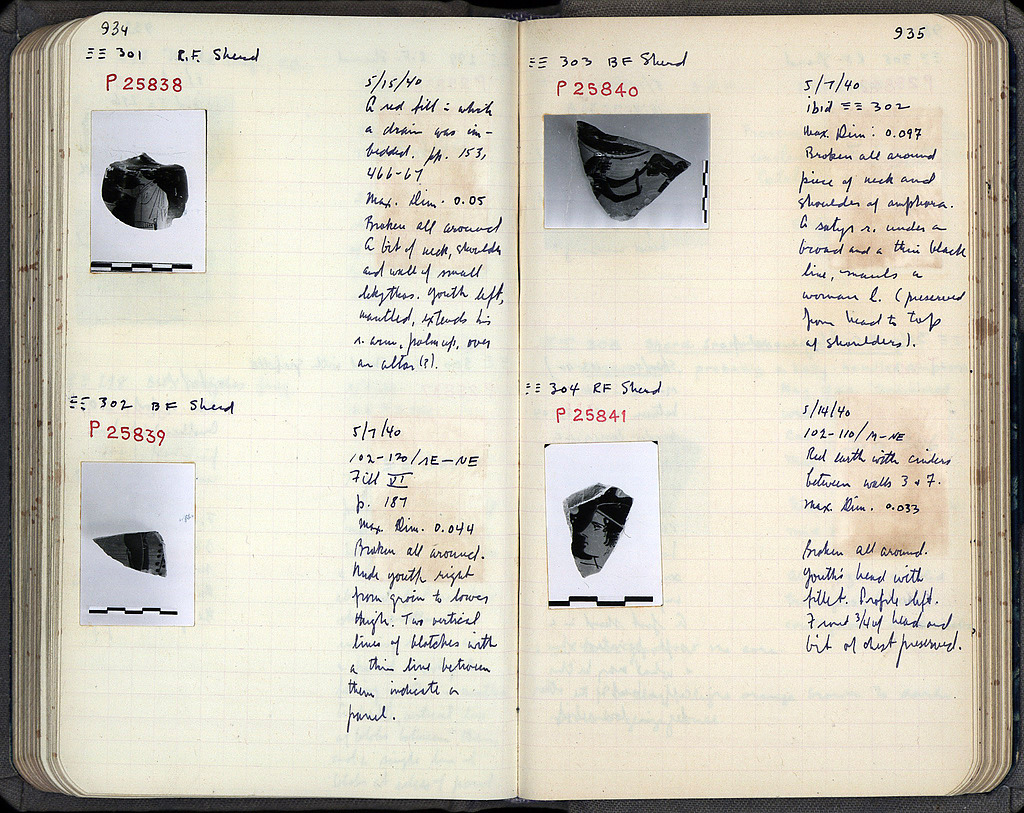 934
ΞΞ 301 R.F. Sherd
P 25838
5/15/40
A red fill in which
a drain was im-
bedded. pp. 153,
466-67
Max. Dim. 0.05
Broken all around
A bit of neck, shoulder
and wall of small
lekythos. Youth left,
mantled, extends his
r. arm, palm up, over
an altar (?).
ΞΞ 302 BF Sherd
P 25839
5/7/40
102-120/ΛΕ-ΝΕ
Fill VI
p. 187
Max. Dim. 0.044
Broken all around.
Nude youth right
from groin to lower
thigh. Two vertical
lines of blotches with
a thin line between
them indicate a
panel.
935
ΞΞ 303 BF Sherd
P 25840
5/7/40
ibid ΞΞ 302
Max. Dim: 0.097
Broken all around
piece of neck and
shoulder of amphora.
A satyr r. under a
broad and a thin black
line, mauls a
woman l. (preserved
from head to top
of shoulders).
ΞΞ 304 RF Sherd
P 25841
5/14/40
102-110/Μ-ΝΕ
Red earth with cinders
between walls 3 + 7.
Max. Dim. 0.033
Broken all around.
Youth's head with
fillet. Profile left.
Front 3/4 of head and
bit of chest preserved.